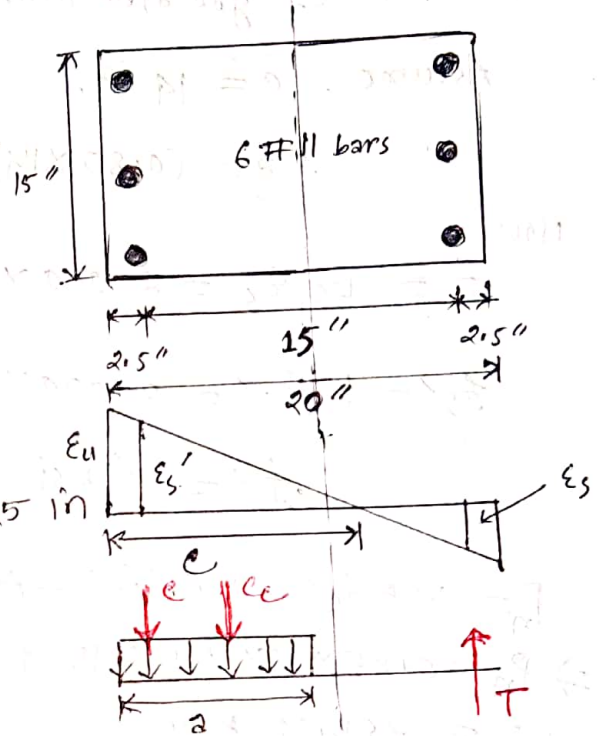 6 # 11 bars
15"
2.5"
15"
2.5"
20"
εu
εs'
εs
5 in
c
c
Cc
a
T